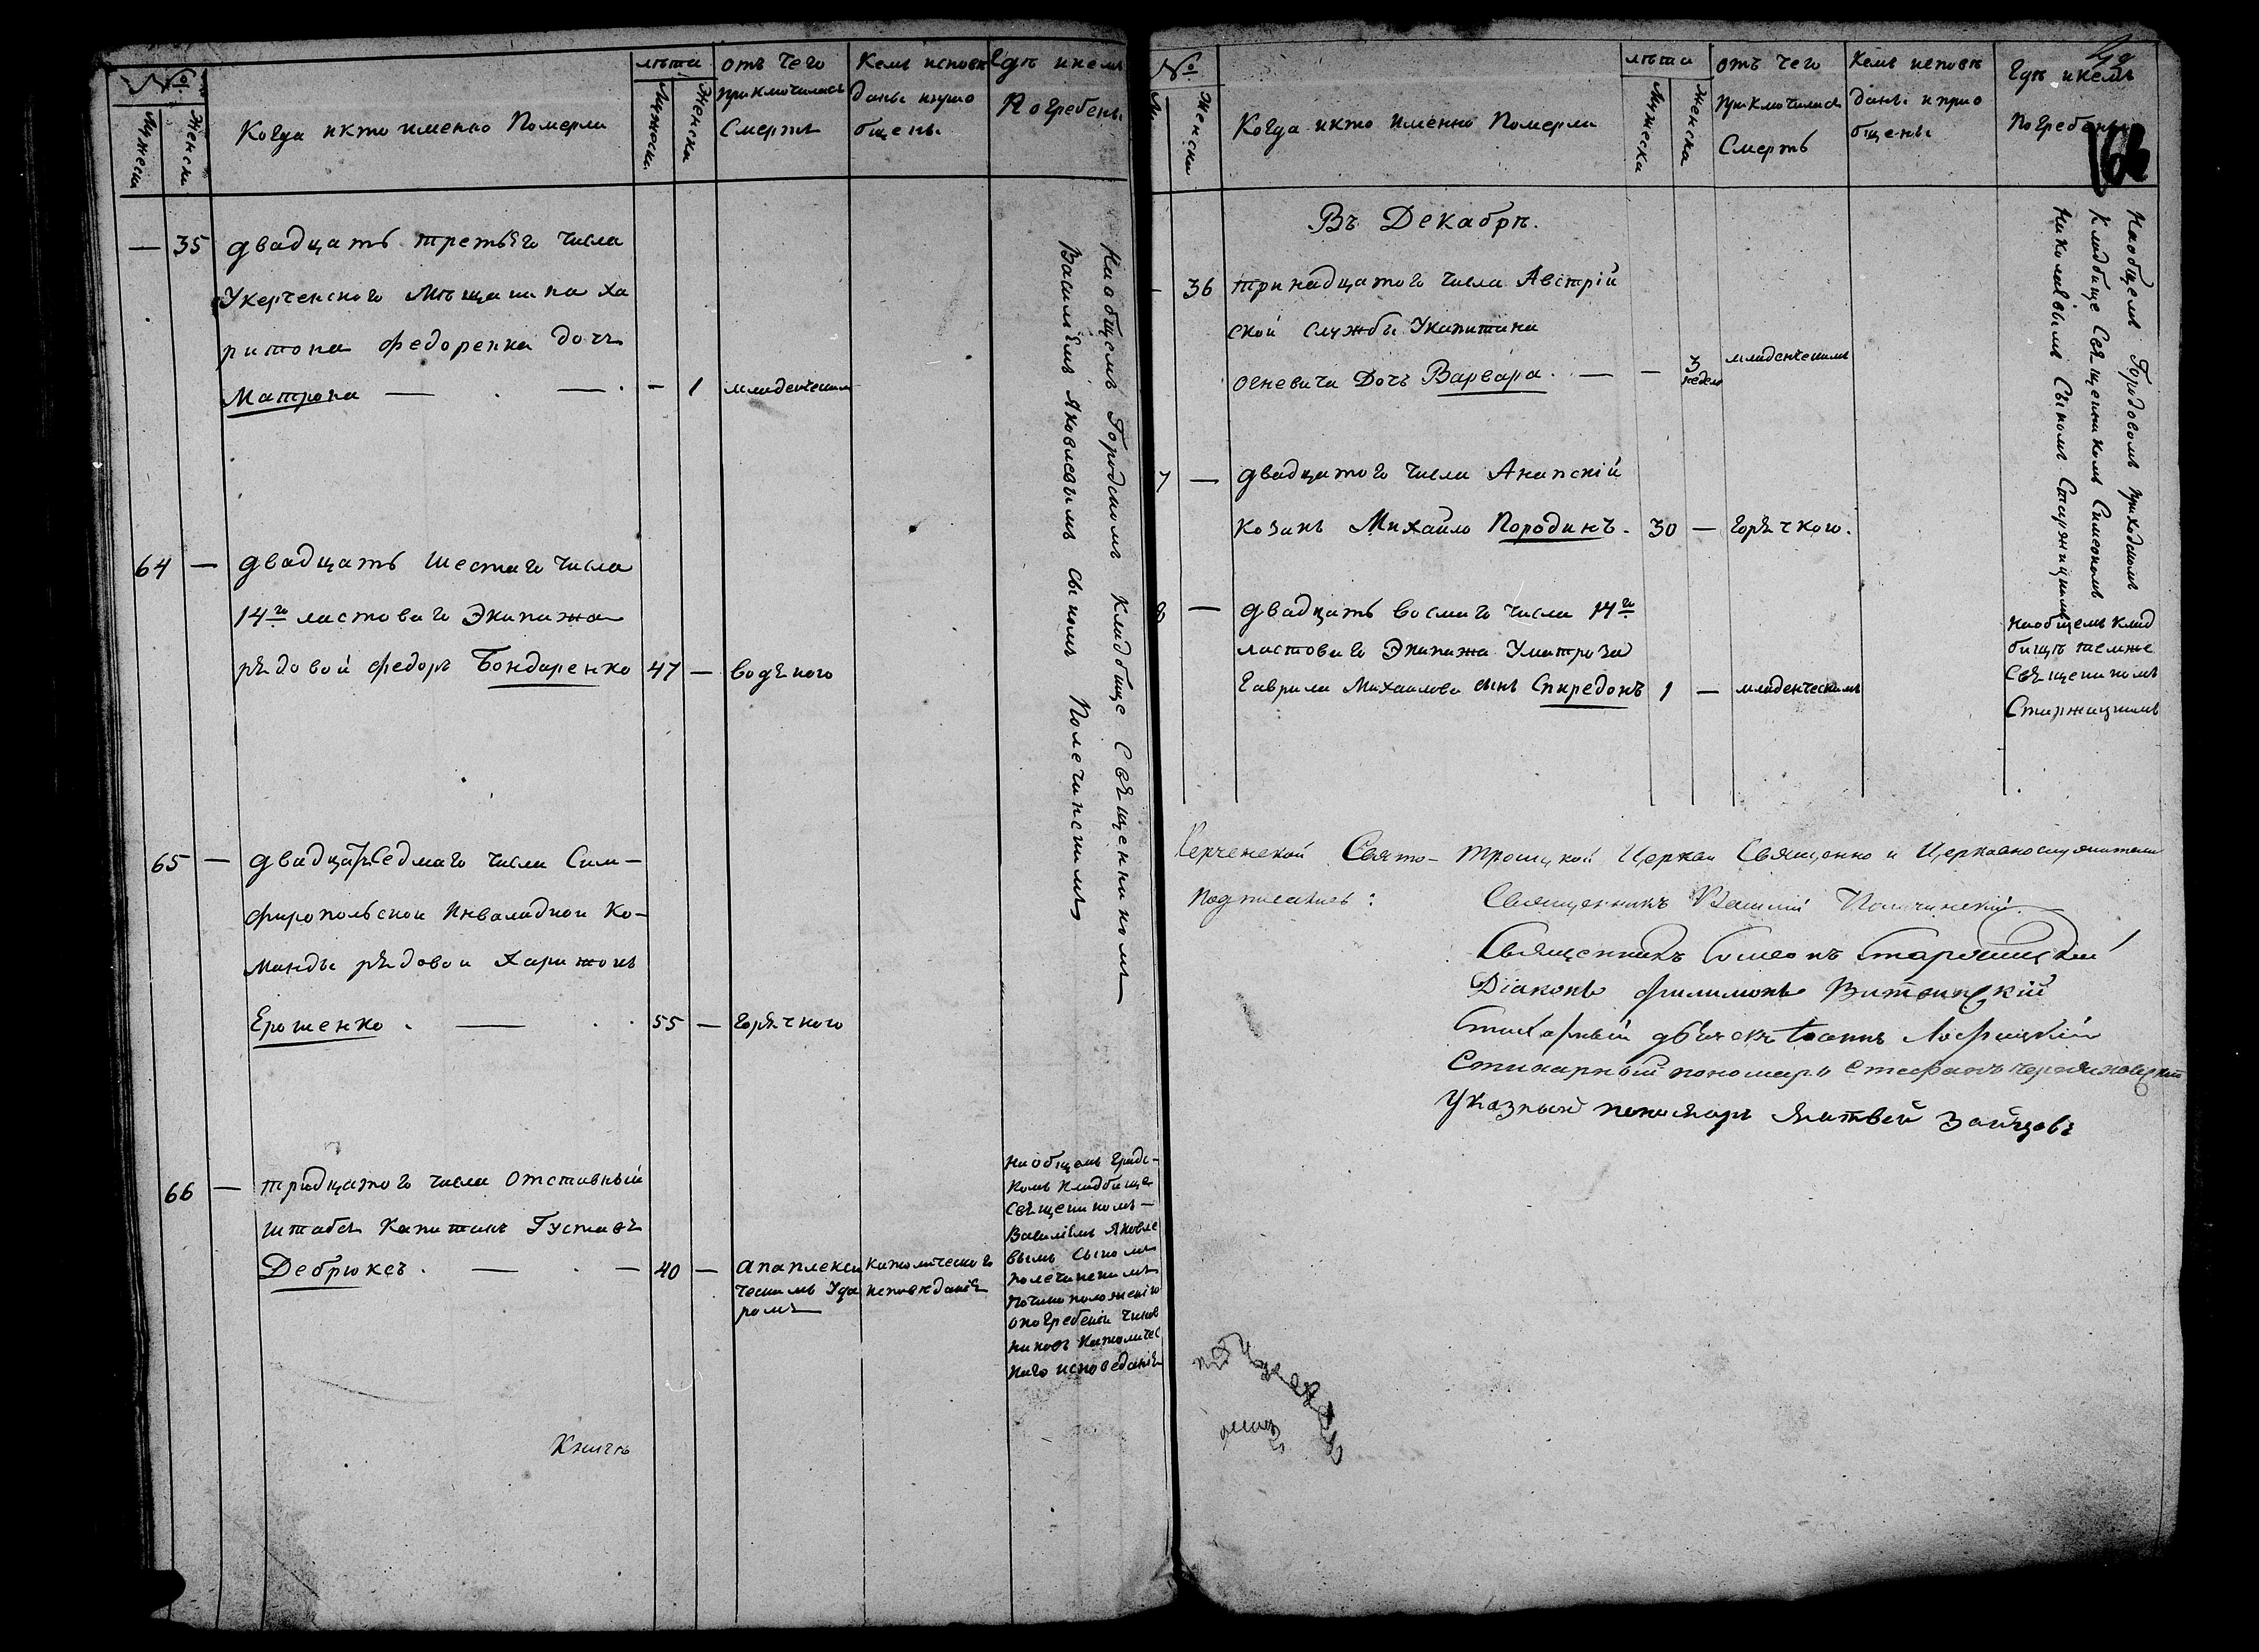 №
Мужеска
Женска
Когда икто именно Померли
лѣта
Мужеска
Женска
отъ чего
приключилась
Смерть
Кемъ исповѣ
даны иприо
бщены
Гдѣ икемъ
Погребены
— 35 двадцать третьего числа
Укерченского Мѣщанина Ха
ритона Федоренка дочь
Матрона — — . — 1 младенческимъ
Наобщемъ Городскомъ Кладбище Священникомъ
Васильемъ Яковлевымъ сыномъ Полечинскимъ
64 — двадцать шестаго числа
14го ластоваго Экипажа
рядовой Федоръ Бондаренко 47 — водяного
65 — двадцать Седмаго числа Сим–
феропольской Инвалидной Ко–
манды рядовои Харитонъ
Ерошенко . — . . 55 — Горячкого
66 — тридцатого числа Отставный
штабсъ Капитанъ Густавъ
Дебрюксъ . — . — 40 — апаплекси
ческимъ Уда
ромъ
католическаго
исповѣданія
Наобщемъ Градс–
комъ Кладбище
Священникомъ —
Васильемъ Яковле
вымъ Сыномъ
полечинскимъ
починоположенію
опогребеніи чинов
никовъ Католичес
каго исповеданія
Книгѣ
№
Женска
Когда икто именно Померли
лѣта
Мужеска
Женска
отъ чего
приключилась
Смерть
Кемъ исповѣ
даны. иприо
бщены
Гдѣ икемъ
Погребены
Въ Декабрѣ.
— 36 тринадцатого числа Австрій
ской службы Укапитана
Огневича Дочь Варвара . — — 3 недели младенческимъ
Наобщемъ Городовомъ приходскомъ
Кладбище Священникомъ Симеономъ
Николаевымъ Сыномъ Старжицкимъ
7 — двадцатого числа Анапскій
козакъ Михайло Породинъ . 30 — горячкого.
8 — двадцать восмаго числа 14го
ластоваго Экипажа Уматроза
Гаврила Михаилова сынъ Спиредонъ 1 — младенческимъ
наобщемъ клад
бищѣ темже
Священникомъ
Старжицкимъ
Керченской Свято–Троицкой Церкви Священно и Церковнослужители
Подписались :
Священникъ Василій Полечинскій.
Священникъ Симеонъ Старжицкій
Діаконъ Филимонъ Витвицкій
Стихарный дьячекъ Іоаннъ
Стихарный пономарь Стефанъ
Указный пономарь Матвей Зайцовъ